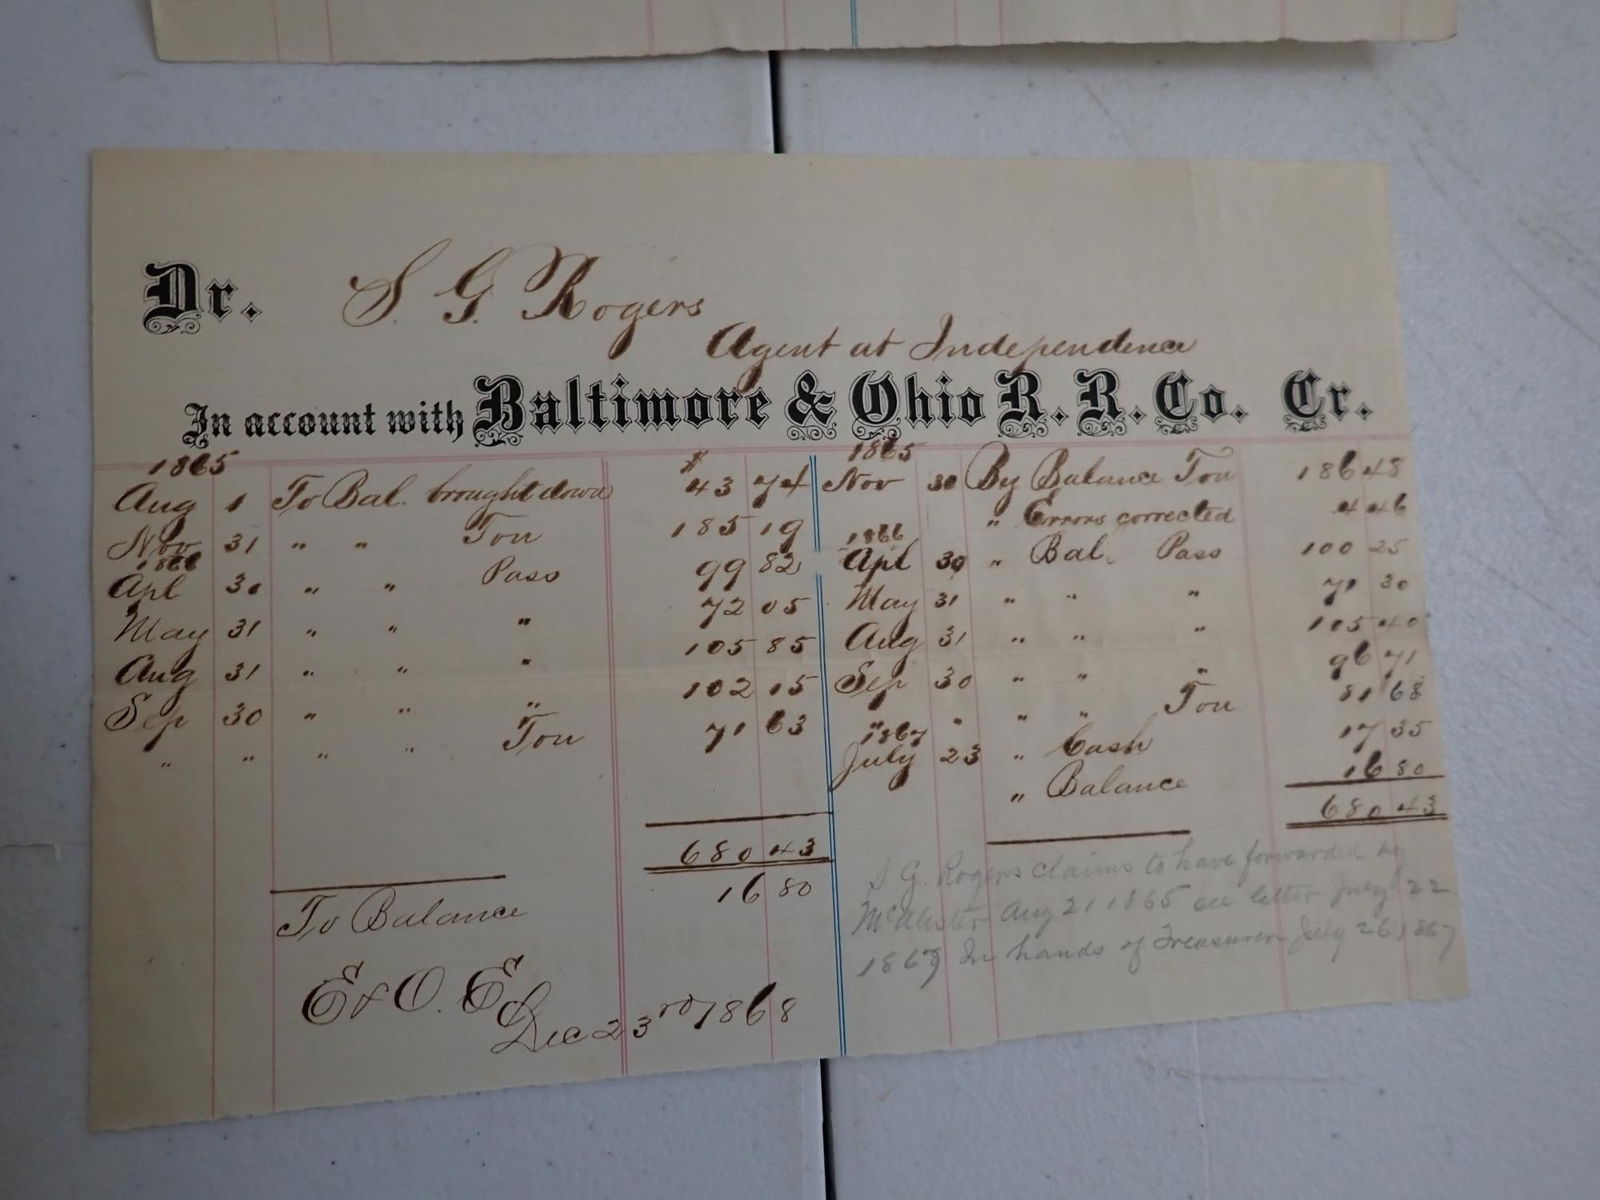 Dr. S. G. Rogers
Agent at Independence
In account with Baltimore & Ohio R. R. Co. Cr.
1865 $
Aug 1 To Bal. brought down 43 74
Nov 31 " " Ton 185 19
1866
Apl 30 " " Pass 99 82
May 31 " " " 72 05
Aug 31 " " " 105 85
Sep 30 " " " 102 15
" " " " Ton 71 63
680 43
To Balance 16 80
E & O. E.
Dec 23rd 1868
1865
Nov 30 By Balance Ton 186 48
" Errors corrected 4 46
1866
Apl 30 " Bal. Pass 100 25
May 31 " " " 71 30
Aug 31 " " " 105 40
Sep 30 " " " 96 71
" " " " Ton 81 68
1867
July 23 " Cash 17 35
" Balance 16 80
680 43
S G. Rogers claims to have forwarded
McAlister Aug 21 1865 see letter July 22
1867 In hands of Treasurer July 26 1867